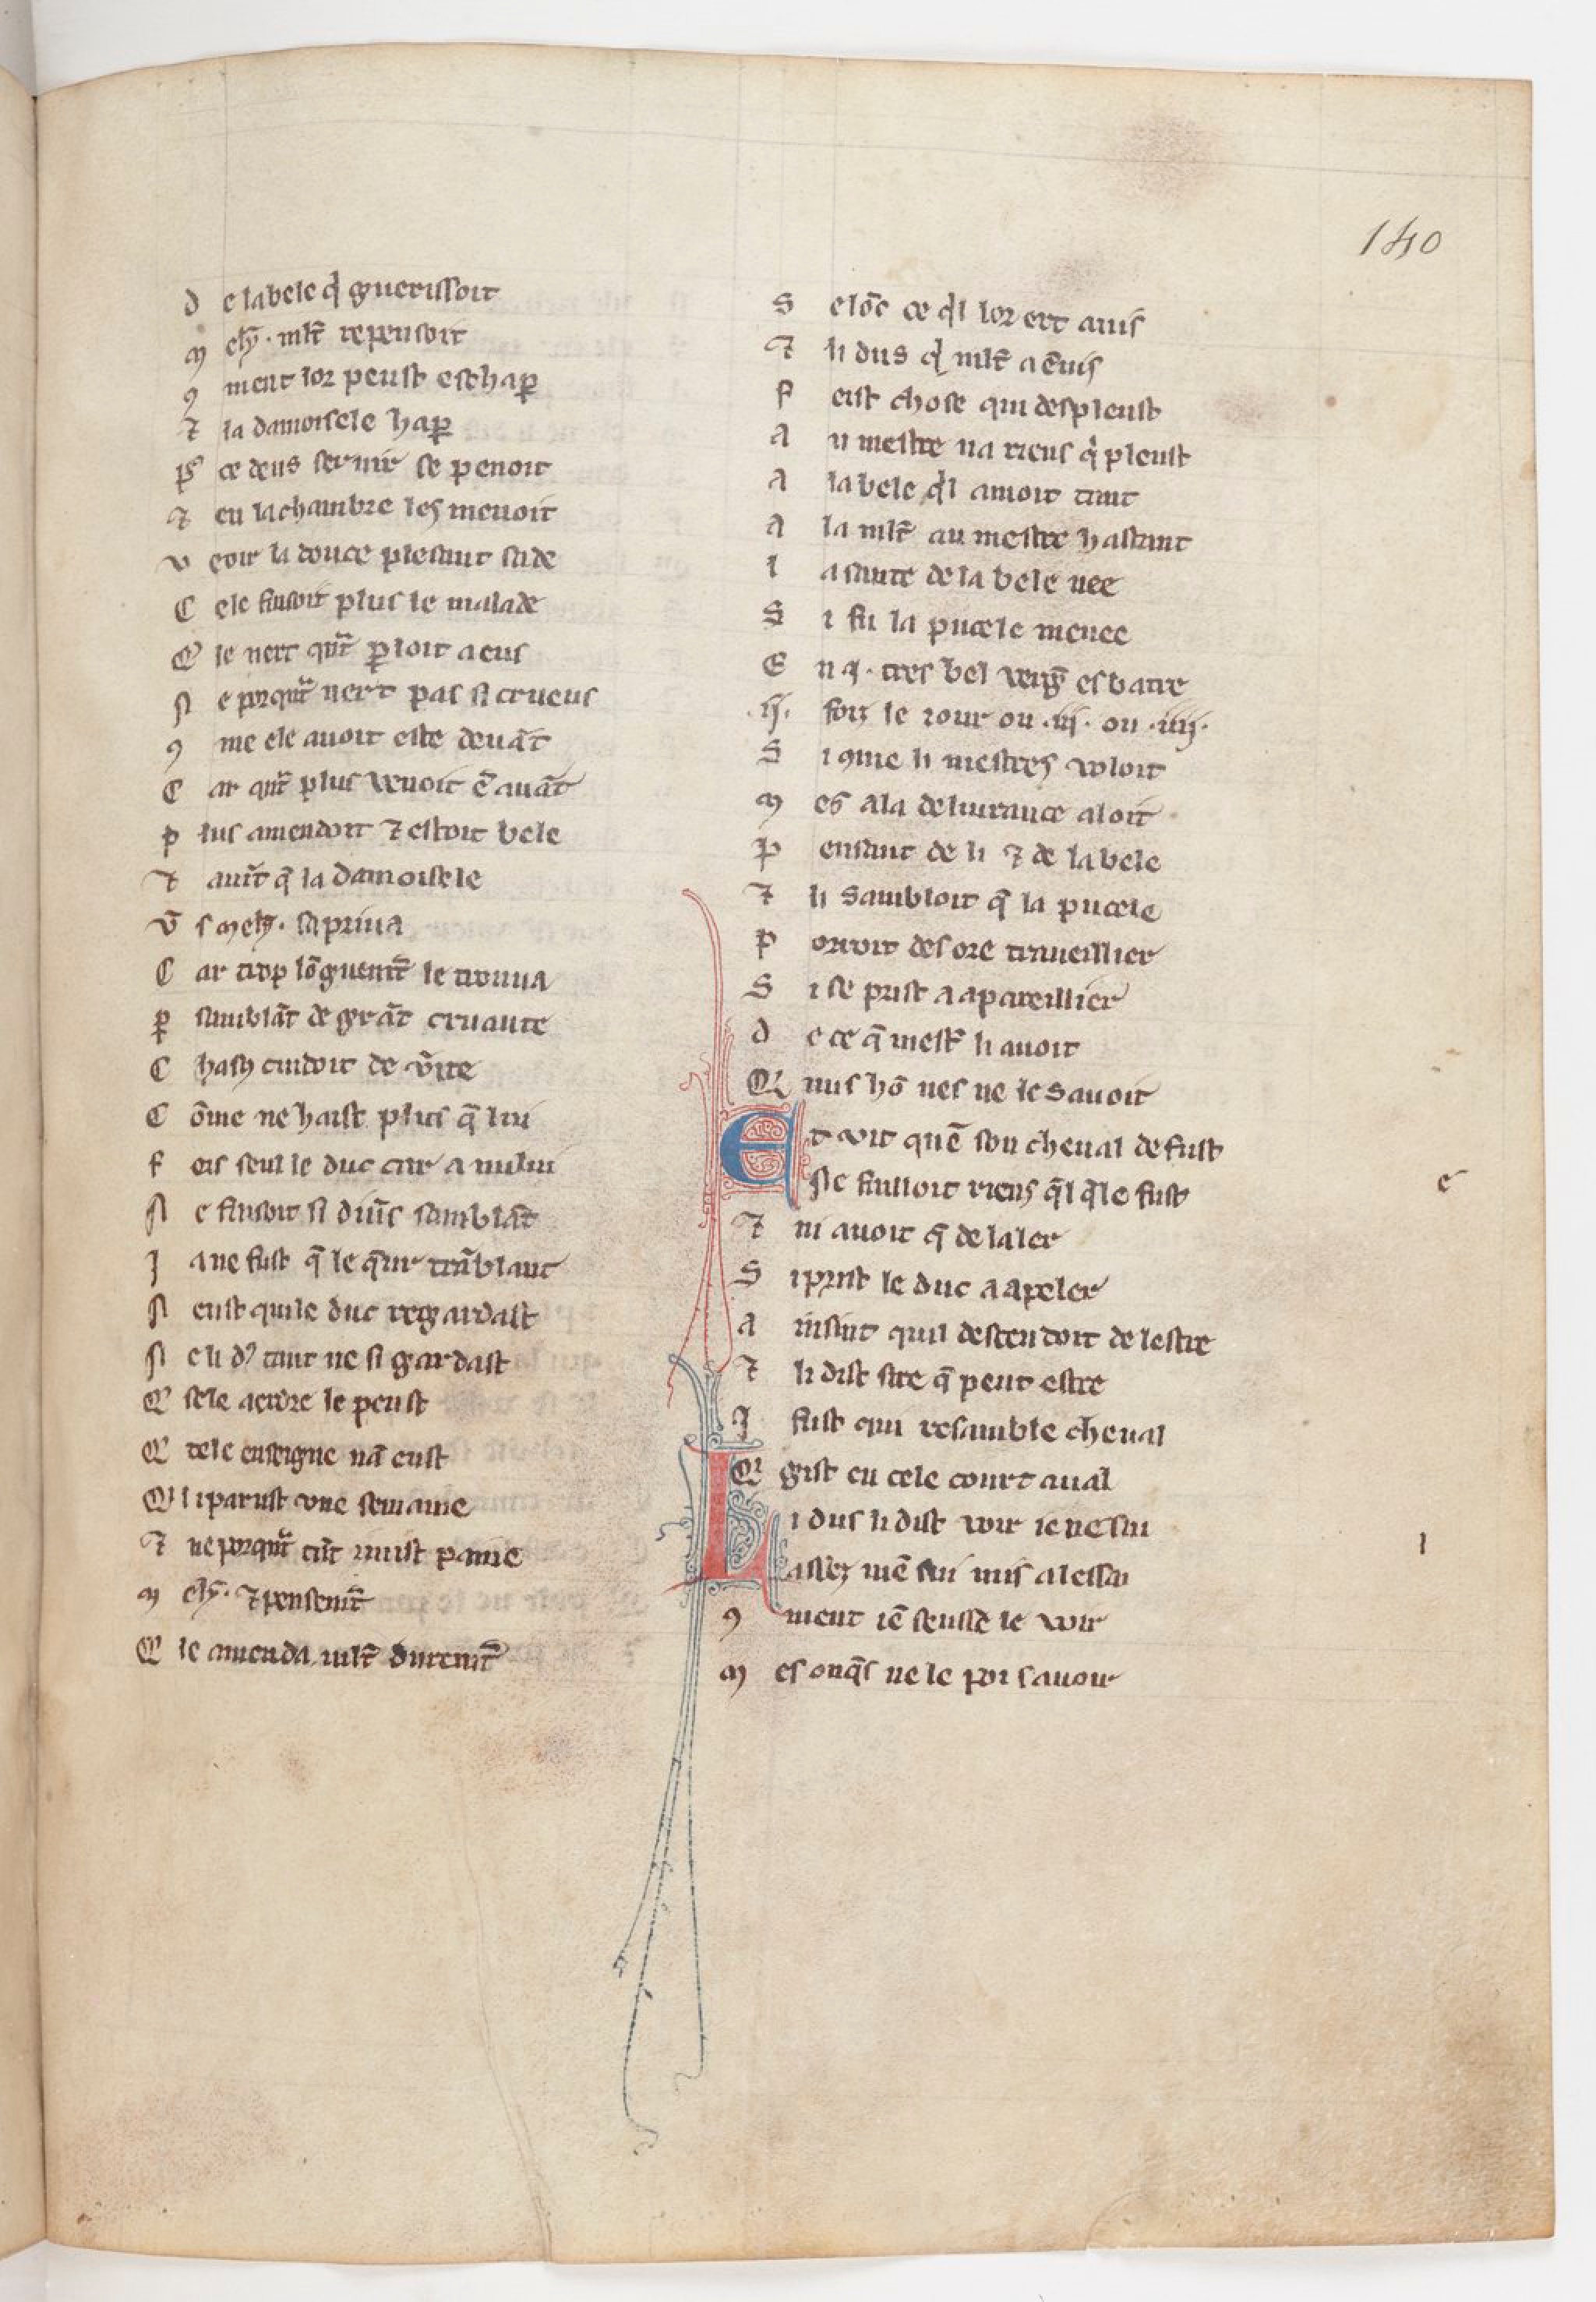 140
De la bele qͥ guerissoit
Mely᷑. mlt̃ repensoit
ꝯment lor peust eschaꝑ
⁊ la damoisele haꝑ
Pͬ ce deus seruir se penoit
⁊ en la chambre les menoit
Veoir la douce plesant sade
Cele faisoit plus le malade
Ele nert qͣnt ꝑloit a eus
Ne porqͣnt nert pas si crueus
ꝯme ele auoit este deuãt
Car qͣnt plus venoit ẽ auãt
Plus amendoit ⁊ estoit bele
⁊ auĩt q̃ la damoisele
Ṽs mely᷑. sapriua
Car trop lõguemẽt le trouua
Ꝑ samblãt de grãt cruaute
Chascũ cuidoit de ṽite
Cõme ne haist plus q̃ lui
Fors seul le duc car a nului
Ne faisoit si diũs samblãt
Ja ne fust q̃ le q̃ur trãblant
Neust qui le duc regardast
Ne li dꝰ tant ne si gardast
Qͥ sele acordre le peust
Qͥ tele enseigne nã eust
Qͥl i parust vne semaine
⁊ ne porqͣnt tãt mist paine
Mely᷑. ⁊ pensemt̃
Qͥle amenda mlt̃ duremt̃
Selõc ce qͥl lor ert auis
⁊ li dus qͥ mlt̃ a ẽuis
Feist chose qui despleust
Au mestre na riens qͥ pleust
A la bele qͥl amoit tant
Ala mlt̃ au mestre hastant
La sante de la bele nee
Si fu la pucele menee
En .i. tres bel verg̃ esbatre
.ij. foiz le iour ou .iij. ou .iiij.
Si ꝯme li mestres voloit
Mes a la deliurance aloit
Pensant de li ⁊ de la bele
⁊ li sambloit q̃ la pucele
Porroit des ore traueillier
Si se prist a apareillier
De ce q̃ mestͬ li auoit
Qͥ nus hõ nes ne le sauoit
Et vit quẽ son cheual de fust
Ne failloit riens q̃l q̃le fust
⁊ ni auoit q̃ de laler
Si prist le duc a apeler
Ainsint quil descendoit de lestre
⁊ li dist sire q̃ peut estre
J fust qui resamble cheual
Qͥ gist en cele court aual
Li dus li dist voir ie ne sai
Assez mẽ sui mis a lessai
ꝯment iẽ seusse le voir
Mes onq̃s ne le poi sauoir
e
l